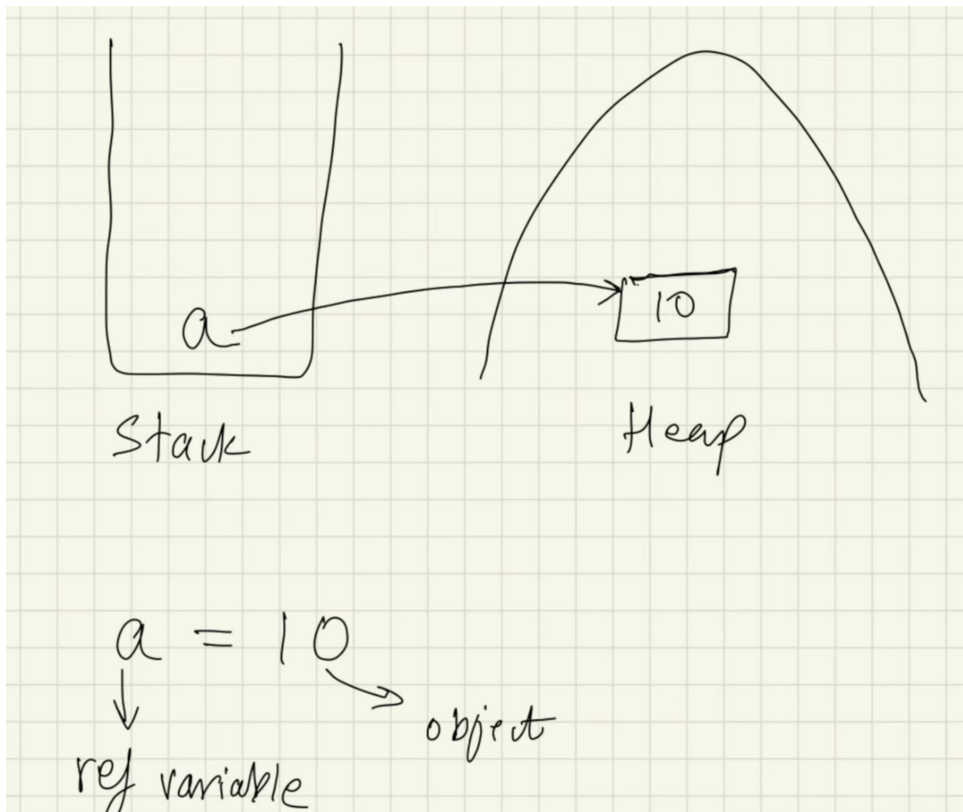 a
10
Stack
Heap
a = 10
object
ref variable